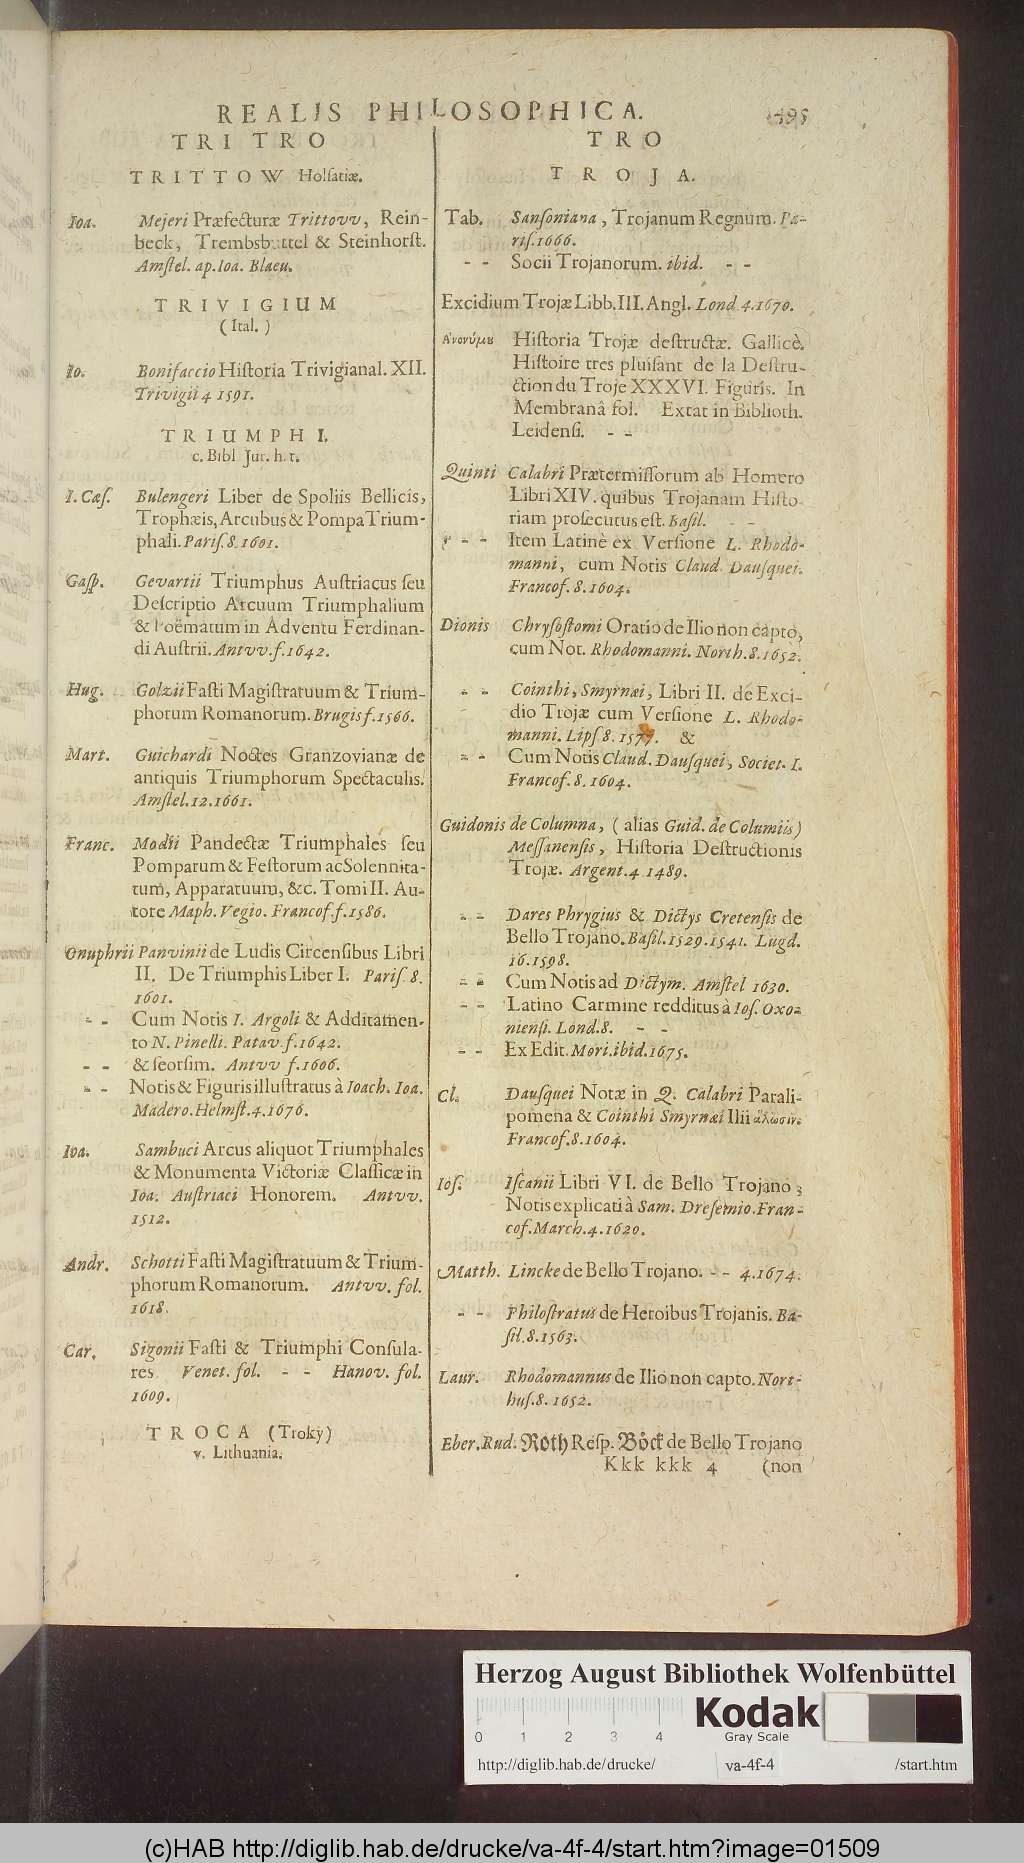 REALIS PHILOSOPHICA. 1495
TRI TRO
TRITTOW Holsatiæ.
Ioa. Mejeri Præfecturæ Trittovv, Rein-
beck, Trembsbuttel & Steinhorst.
Amstel. ap. Ioa. Blaeu.
TRIVIGIUM
(Ital.)
Io. Bonifaccio Historia Trivigianal. XII.
Trivigii 4 1591.
TRIUMPHI.
c. Bibl Jur. h. t.
I. Cæs. Bulengeri Liber de Spoliis Bellicis,
Trophæis, Arcubus & Pompa Trium-
phali. Paris. 8. 1601.
Gasp. Gevartii Triumphus Austriacus seu
Descriptio Arcuum Triumphalium
& Poëmatum in Adventu Ferdinan-
di Austrii. Antvv. f. 1642.
Hug. Golzii Fasti Magistratuum & Trium-
phorum Romanorum. Brugis f. 1566.
Mart. Guichardi Noctes Granzovianæ de
antiquis Triumphorum Spectaculis.
Amstel. 12. 1661.
Franc. Modii Pandectæ Triumphales seu
Pomparum & Festorum ac Solennita-
tum, Apparatuum, &c. Tomi II. Au-
tore Maph. Vegio. Francof. f. 1586.
Onuphrii Panvinii de Ludis Circensibus Libri
II. De Triumphis Liber I. Paris. 8.
1601.
- - Cum Notis I. Argoli & Additamen-
to N. Pinelli. Patav. f. 1642.
- - & seorsim. Antvv f. 1606.
- - Notis & Figuris illustratus à Ioach. Ioa.
Madero. Helmst. 4. 1676.
Ioa. Sambuci Arcus aliquot Triumphales
& Monumenta Victoriæ Classicæ in
Ioa. Austriaci Honorem. Antvv.
1512.
Andr. Schotti Fasti Magistratuum & Trium-
phorum Romanorum. Antvv. fol.
1618.
Car. Sigonii Fasti & Triumphi Consula-
res Venet. fol. - - Hanov. fol.
1609.
TROCA (Troky)
v. Lithuania.
TRO
TROJA.
Tab. Sansoniana, Trojanum Regnum. Pa-
ris. 1666.
- - Socii Trojanorum. ibid. - -
Excidium Trojæ Libb. III. Angl. Lond 4. 1670.
Ἀνονύμου Historia Trojæ destructæ. Gallicè.
Histoire tres pluisant de la Destru-
ction du Troje XXXVI. Figuris. In
Membranâ fol. Extat in Biblioth.
Leidensi. - -
Quinti Calabri Prætermissorum ab Homero
Libri XIV. quibus Trojanam Histo-
riam prosecutus est. Basil. - -
- - Item Latinè ex Versione L. Rhodo-
manni, cum Notis Claud. Dausquei.
Francof. 8. 1604.
Dionis Chrysostomi Oratio de Ilio non capto,
cum Not. Rhodomanni. North. 8. 1652.
- - Cointhi, Smyrnæi, Libri II. de Exci-
dio Trojæ cum Versione L. Rhodo-
manni. Lips 8. 1577. &
- - Cum Notis Claud. Dausquei, Societ. I.
Francof. 8. 1604.
Guidonis de Columna, (alias Guid. de Columiis)
Messanensis, Historia Destructionis
Trojæ. Argent. 4 1489.
- - Dares Phrygius & Dictys Cretensis de
Bello Trojano. Basil. 1529. 1541. Lugd.
16. 1598.
- - Cum Notis ad Dictym. Amstel 1630.
- - Latino Carmine redditus à Ios. Oxo-
niensi. Lond. 8. - -
- - Ex Edit. Mori. ibid. 1675.
Cl. Dausquei Notæ in Q. Calabri Parali-
pomena & Cointhi Smyrnæi Ilii ἅλωσιν.
Francof. 8. 1604.
Ios. Iscanii Libri VI. de Bello Trojano,
Notis explicati à Sam. Dresemio. Fran-
cof. March. 4. 1620.
Matth. Lincke de Bello Trojano. - - 4. 1674.
- - Philostratus de Heroibus Trojanis. Ba-
sil. 8. 1563.
Laur. Rhodomannus de Ilio non capto. Nort-
hus. 8. 1652.
Eber. Rud. Roth Resp. Böck de Bello Trojano
Kkk kkk 4 (non
Herzog August Bibliothek Wolfenbüttel
0 1 2 3 4
Kodak
Gray Scale
http://diglib.hab.de/drucke/ va-4f-4 /start.htm
(c)HAB http://diglib.hab.de/drucke/va-4f-4/start.htm?image=01509